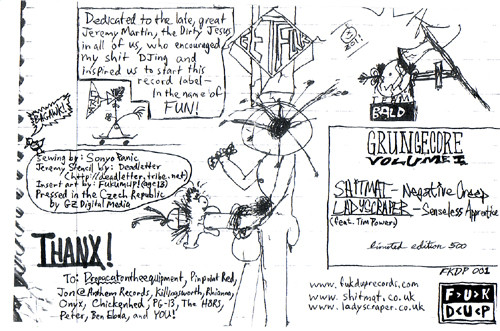 Dedicated to the late, great
Jeremy Martin, the Dirty Jesus
in all of us, who encouraged
my shit DJing and
inspired us to start this
record label—
in the name of
FUN!
GET FUCT
BAGAWK!
Sewing by: Sonya Panic
Jeremy Stencil by: Deadletter
(http://deadletter.tribe.net)
Insert art by: FukumUP! (age 18)
Pressed in the Czech Republic
by GZ Digital Media
TEAM
BALD
GRUNGECORE
VOLUME 1
SHITMAT - Negative Creep
LADYSCRAPER - Senseless Apprentice
(feat. Tim Powers)
limited edition 500
FKDP 001
THANX!
To: Dropacatontheequipment, Pinpoint Red,
Jon@Anthem Records, Killingsworth, Rhianna,
Onyx, Chickenhed, PG-13, The H3RS,
Peter, Ben Ebola, and YOU!
www.fukduprecords.com
www.shitmat.co.uk
www.ladyscraper.co.uk
F>U>K
D<U<P